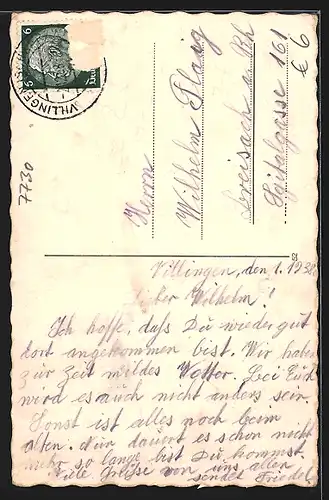 6 6
VILLINGEN
Herrn
Wilhelm Plaag
Breisach a. Rh
Spitalgasse 161
€ 6
7730
Villingen, den 1. 1938
Lieber Wilhelm!
Ich hoffe, daß Du wieder gut
dort angekommen bist. Wir haben
zur Zeit mildes Wetter. Bei Euch
wird es auch nicht anders sein.
Sonst ist alles noch beim
alten. Nun dauert es schon nicht
mehr so lange bist Du kommst.
Viele Grüße von uns allen
sendet Friedel